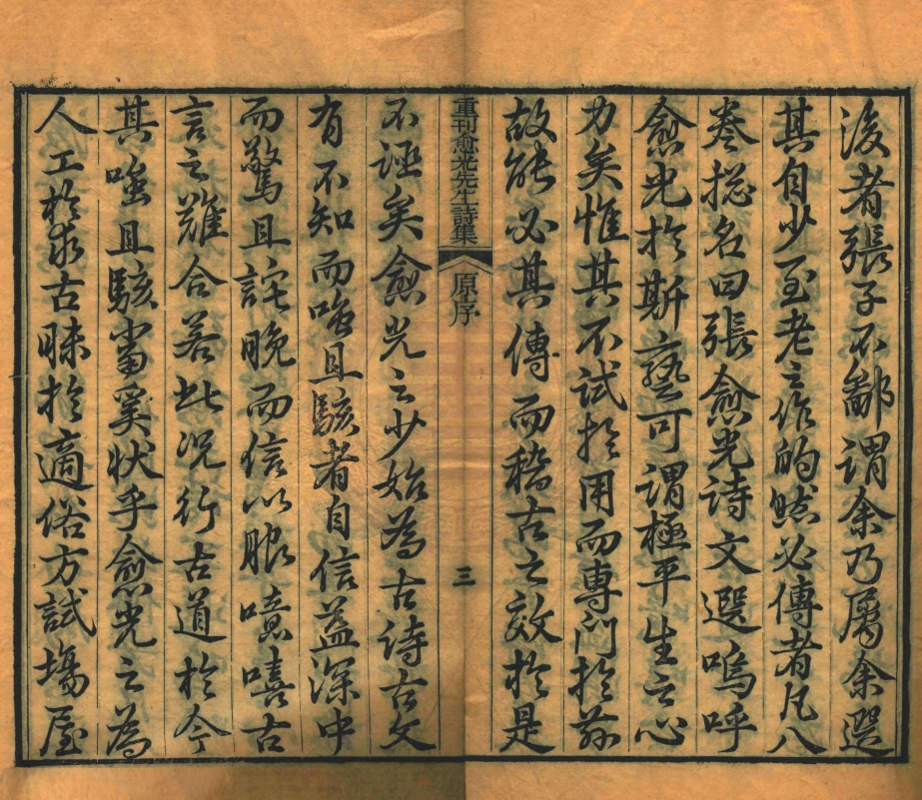 後者張子不鄙謂余乃屬余選
其自少至老之作的然必傳者凡八
卷捴名曰張愈光詩文選嗚呼
愈光於斯藝可謂極平生之心
力矣惟其不試於用而專門於茲
故能必其傳而稽古之效於是
重刊愈光先生詩集
原序
三
不誣矣愈光之少始為古詩古文
有不知而嗤且駭者自信益深中
而驚且詫晚而信以服噫嘻古
言之難合若此況行古道於今
其嗤且駭當奚狀乎愈光之為
人工於求古昧於適俗方試塲屋